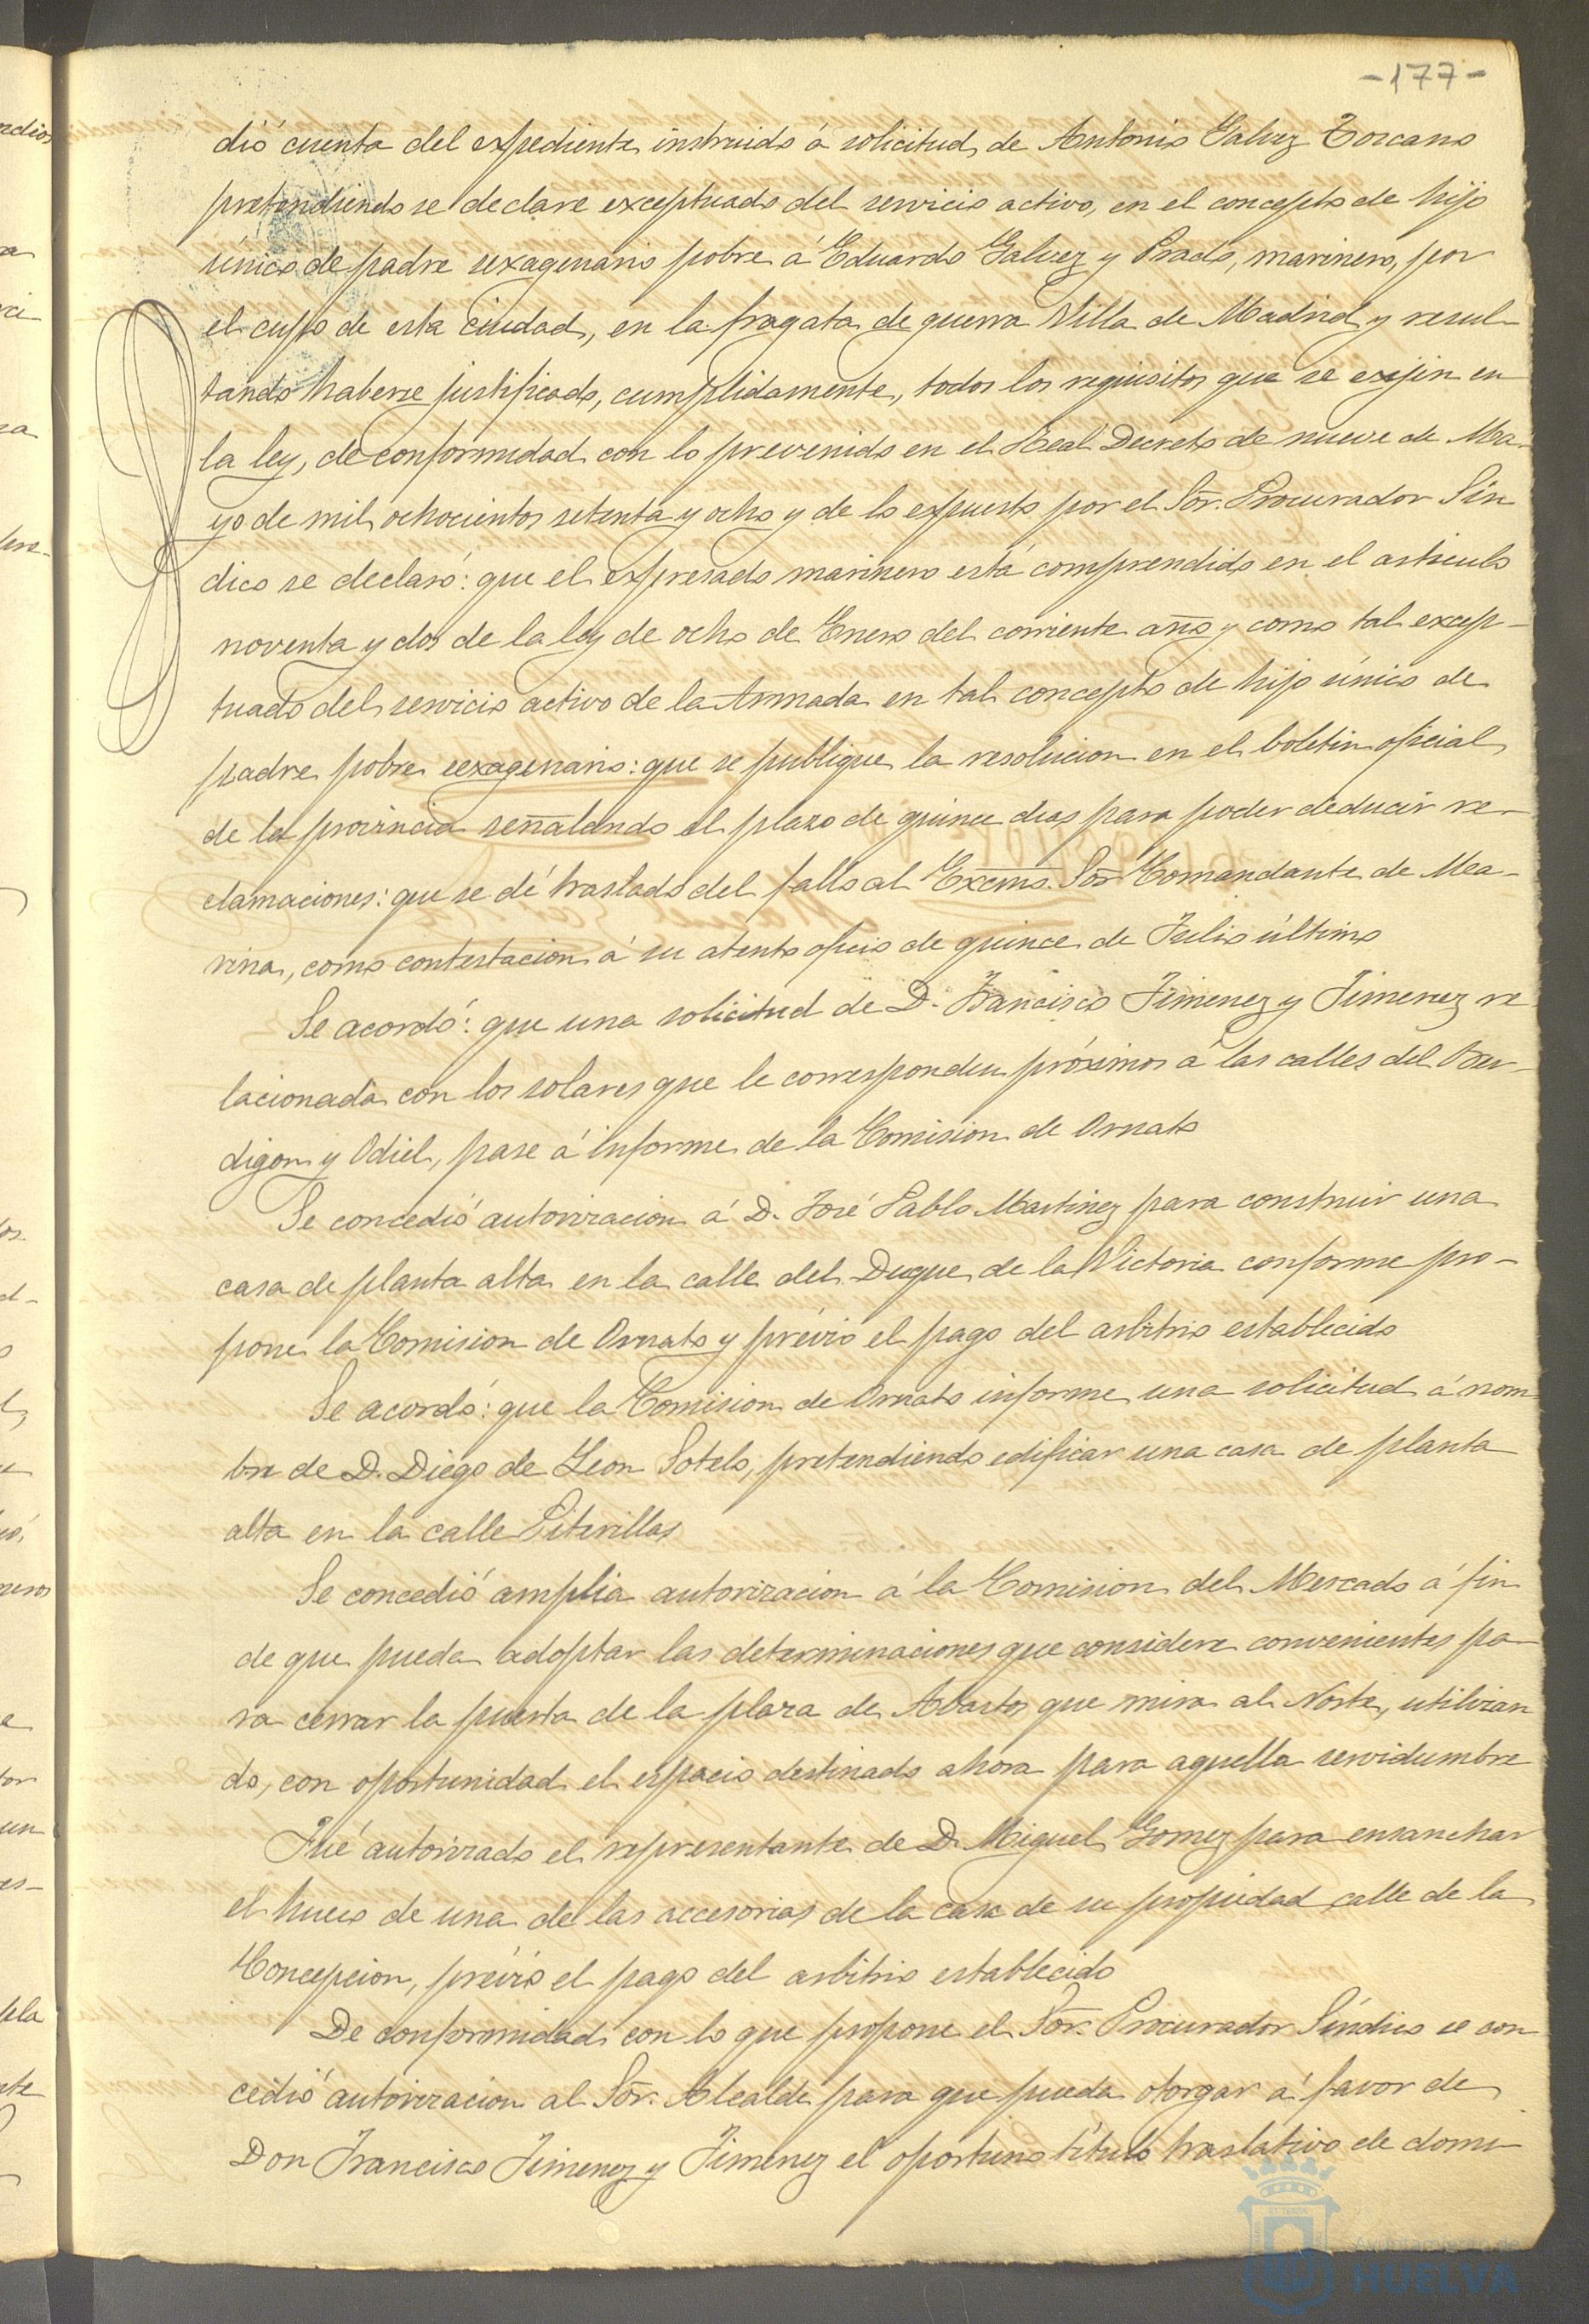 -177-
dió cuenta del expediente instruido á solicitud de Antonio Galvez Toscano
pretendiendo se declare exceptuado del servicio activo, en el concepto de hijo
único de padre sexagenario pobre á Eduardo Galvez y Prado, marinero, por
el cupo de esta ciudad, en la fragata de guerra Villa de Madrid y resul-
tando haberse justificado, cumplidamente, todos los requisitos que se exijen en
la ley, de conformidad con lo prevenido en el Real Decreto de nueve de Ma-
yo de mil ochocientos setenta y ocho y de lo expuesto por el Sór. Procurador Sín
dico se declaró: que el expresado marinero está comprendido en el articulo
noventa y dos de la ley de ocho de Enero del corriente año y como tal excep-
tuado del servicio activo de la Armada en tal concepto de hijo único de
padre pobre sexagenario: que se publique la resolucion en el boletin oficial
de la provincia señalando el plazo de quince dias para poder deducir re-
clamaciones: que se dé traslado del fallo al Excmo. Sór Comandante de Ma-
rina, como contestacion á su atento oficio de quince de Julio último
Se acordó: que una solicitud de D. Francisco Jimenez y Jimenez re
lacionada con los solares que le corresponden próximos á las calles del Ber-
digon y Odiel, pase á informe de la Comision de Ornato
Se concedió autorizacion á D. José Pablo Martinez para construir una
casa de planta alta en la calle del Duque de la Victoria conforme pro-
pone la Comision de Ornato y prévio el pago del arbitrio establecido
Se acordó: que la Comision de Ornato informe una solicitud á nom
bre de D. Diego de Leon Sotelo, pretendiendo edificar una casa de planta
alta en la calle Piterillas
Se concedió amplia autorizacion á la Comision del Mercado á fin
de que pueda adoptar las determinaciones que considere convenientes pa-
ra cerrar la puerta de la plaza de Abastos que mira al Norte, utilizan
do, con oportunidad el espacio destinado ahora para aquella servidumbre
Fué autorizado el representante de D. Miguel Gomez para ensanchar
el hueco de una de las accesorias de la casa de su propiedad calle de la
Concepcion, prévio el pago del arbitrio establecido
De conformidad con lo que propone el Sór. Procurador Síndico se con
cedió autorizacion al Sór. Alcalde para que pueda otorgar á favor de
Don Francisco Jimenez y Jimenez el oportuno título traslativo de domi-
HUELVA